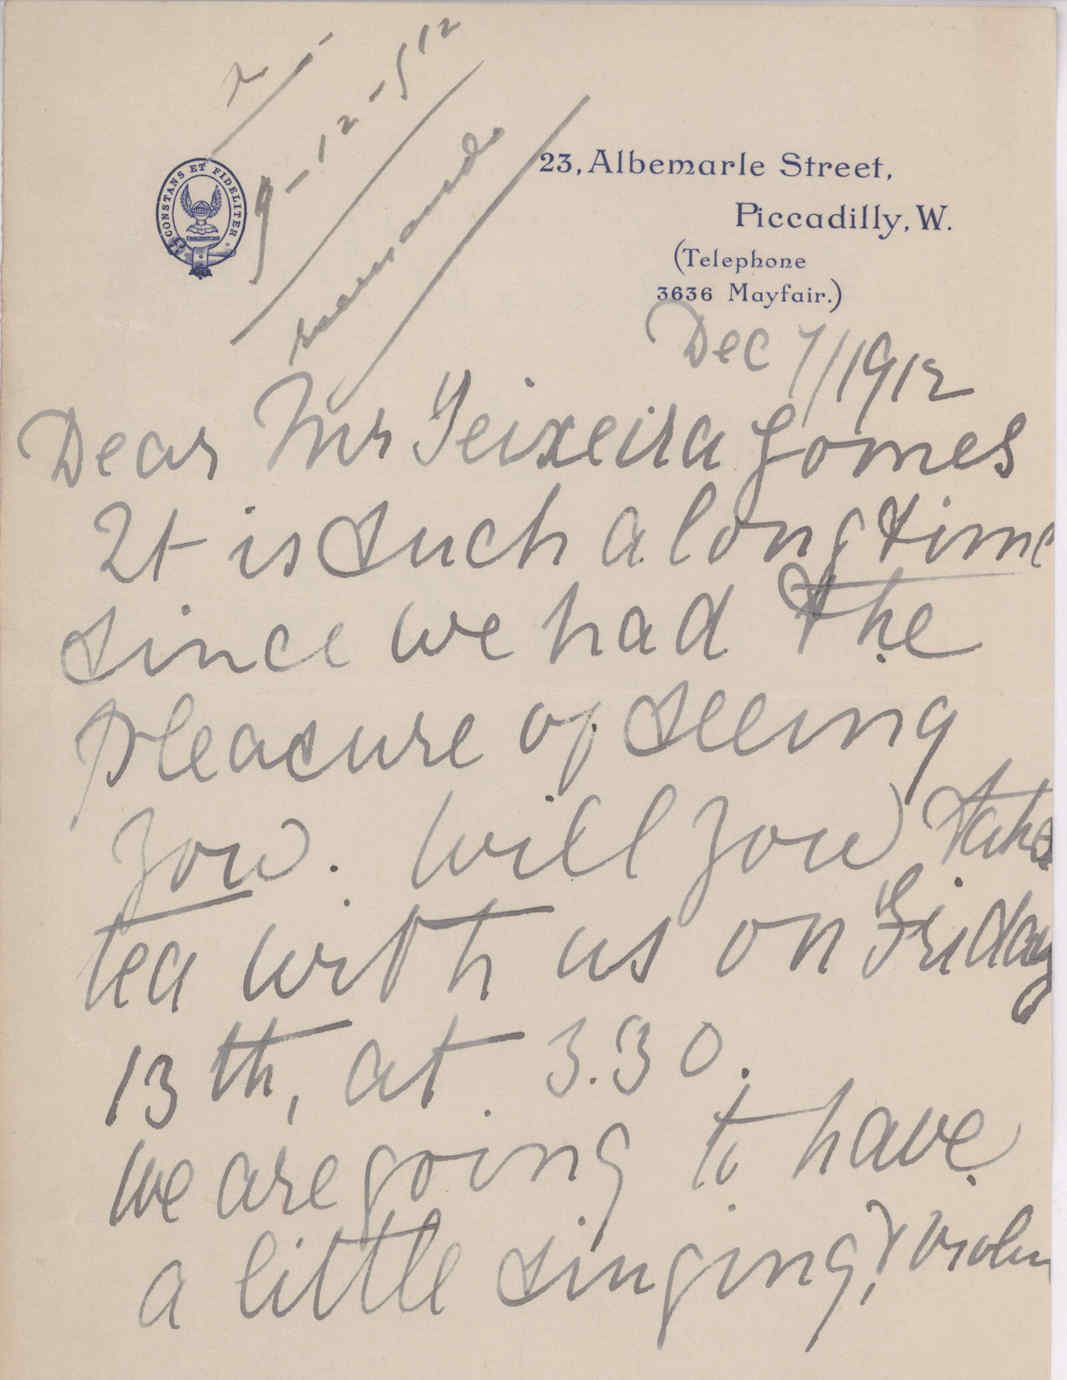 9-12-912
CONSTANS ET FIDELITER
23, Albemarle Street,
Piccadilly, W.
(Telephone
3636 Mayfair.)
Dec 7/1912
Dear Mr Teixeira Gomes
It is such a long time
since we had the
pleasure of seeing
you. Will you take
tea with us on Friday
13th, at 3.30.
We are going to have
a little singing, & violin